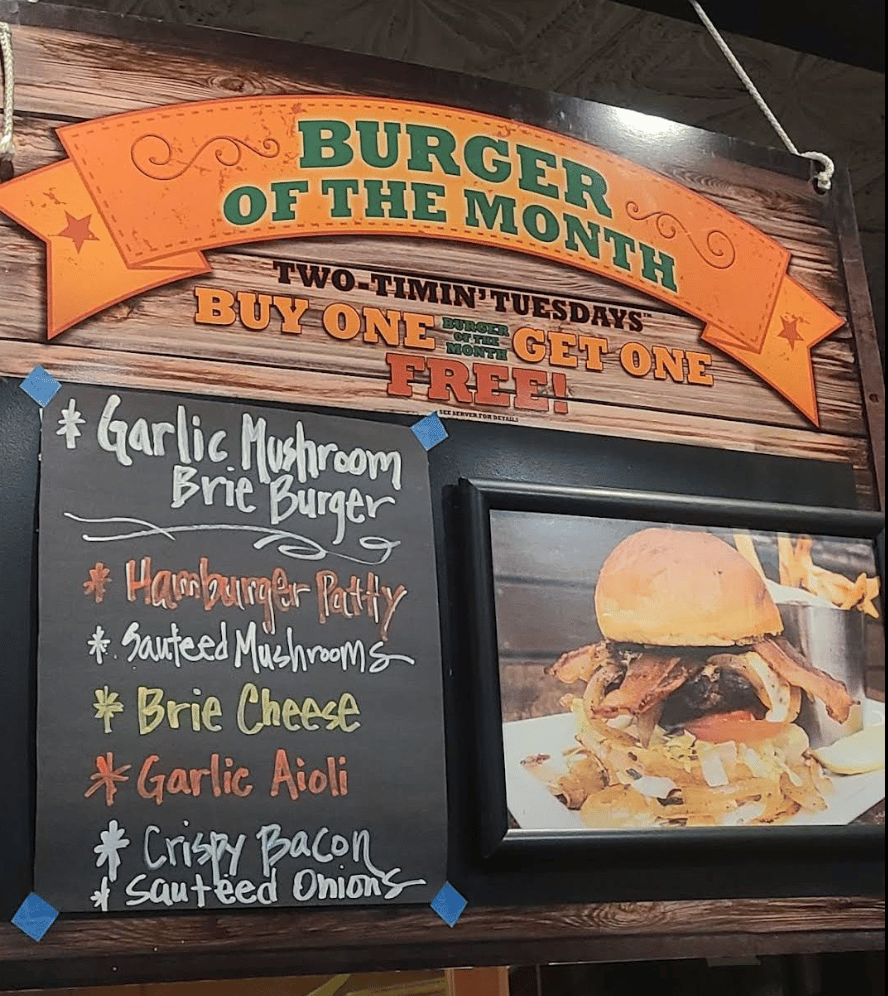 BURGER
OF THE MONTH
TWO-TIMIN' TUESDAYS™
BUY ONE BURGER OF THE MONTH GET ONE
FREE!
SEE SERVER FOR DETAILS
* Garlic Mushroom
Brie Burger
* Hamburger Patty
* Sauteed Mushrooms
* Brie Cheese
* Garlic Aioli
* Crispy Bacon
* Sauteed Onions